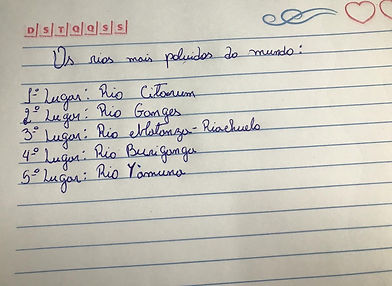 D S T Q Q S S
Os rios mais poluidos do mundo:
1º Lugar: Rio Citarum
2º Lugar: Rio Ganges
3º Lugar: Rio Matanza-Riachuelo
4º Lugar: Rio Buriganga
5º Lugar: Rio Yamuna